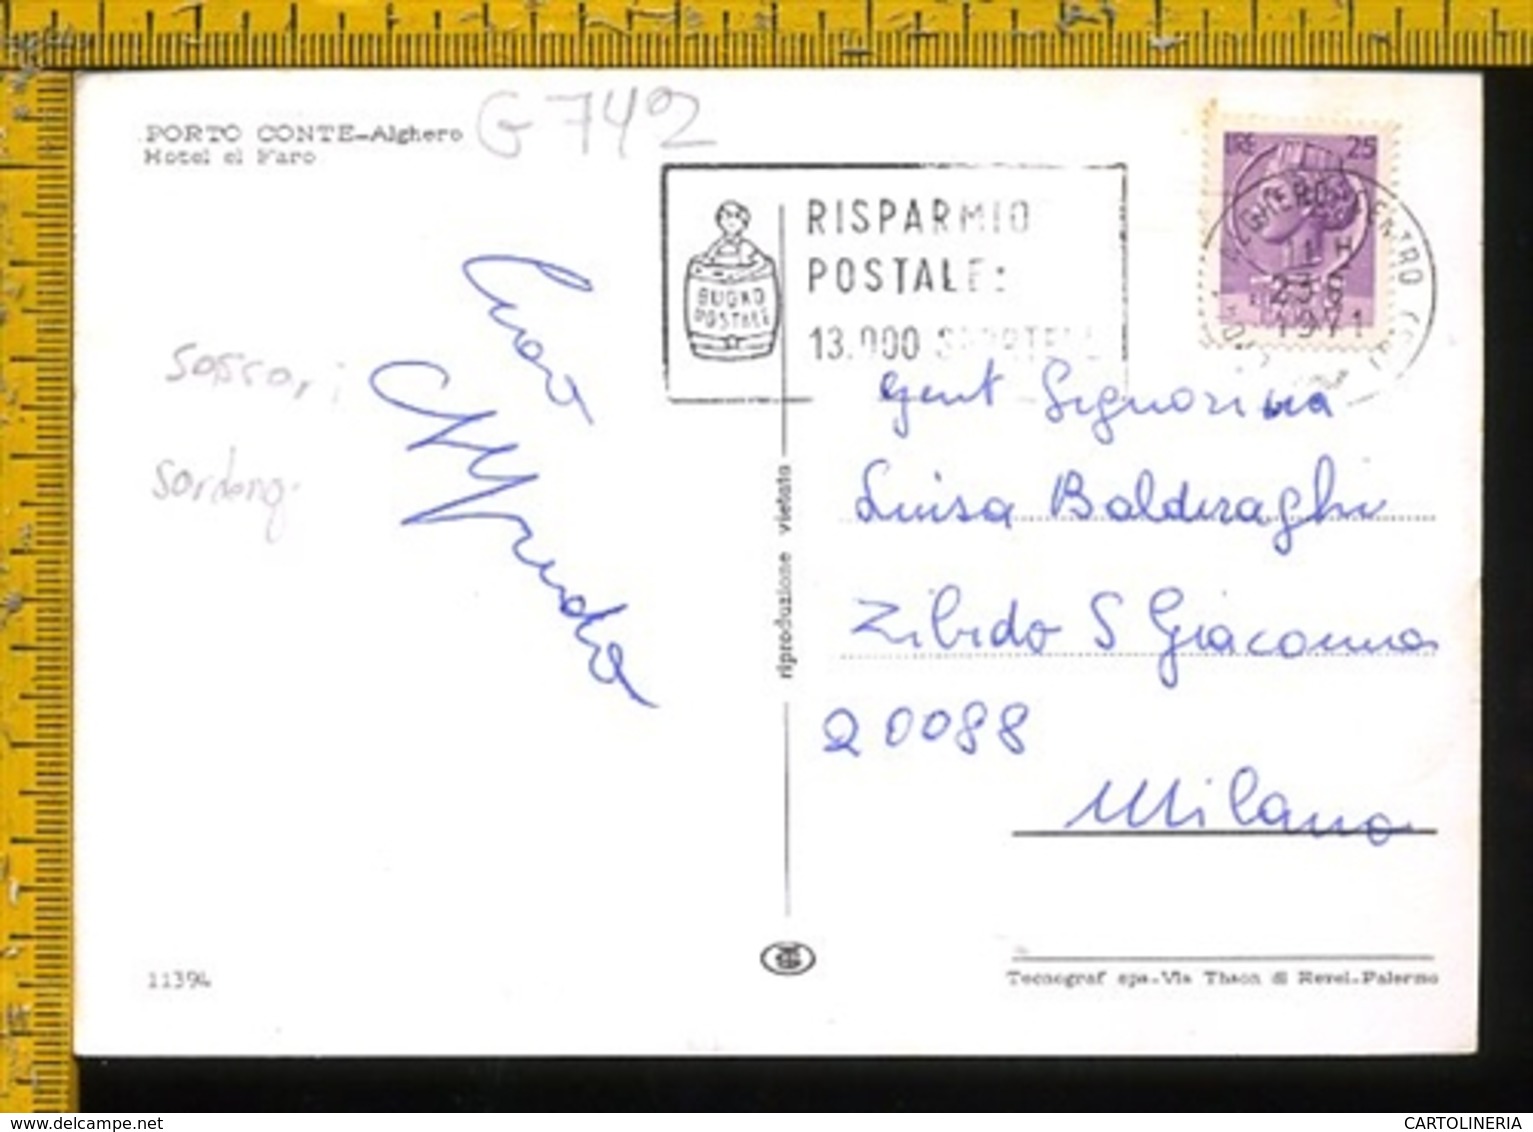 PORTO CONTE-Alghero
Hotel el Faro
G 742
RISPARMIO
POSTALE:
13.000 SPORTELLI
BUONO
POSTALE
LIRE 25
ALGHERO CENTRO
11 H
23 6
1971
Sassari
Sardeng.
gent Signorina
Luisa Balderaghi
Zibido S Giacomo
20088
Milano
riproduzione vietata
11394
Tecnograf spa-Via Thaon di Revel-Palermo
CARTOLINERIA